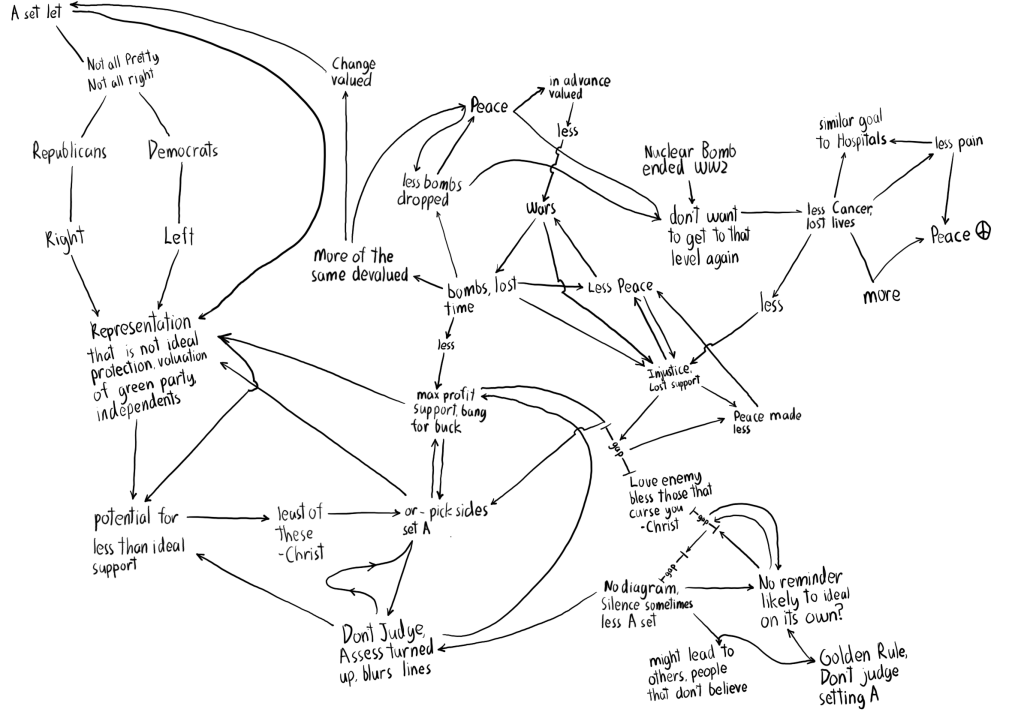 A set let
Not all Pretty
Not all right
Republicans
Democrats
Right
Left
Representation
that is not ideal
protection, valuation
of green party,
independents
potential for
less than ideal
support
least of
these
-Christ
or - pick sides
set A
Don't Judge,
Assess turned
up, blurs lines
Change
valued
More of the
same devalued
Peace
in advance
valued
less
less bombs
dropped
Wars
bombs, lost
time
less
max profit
support, bang
for buck
Less Peace
Injustice,
Lost support
Peace made
less
gap
Love enemy
bless those that
curse you
-Christ
gap
gap
No diagram,
Silence sometimes
less A set
No reminder
likely to ideal
on its own?
might lead to
others, people
that don't believe
Golden Rule,
Don't judge
setting A
Nuclear Bomb
ended WW2
don't want
to get to that
level again
less Cancer,
lost lives
similar goal
to Hospitals
less pain
Peace ☮
more
less